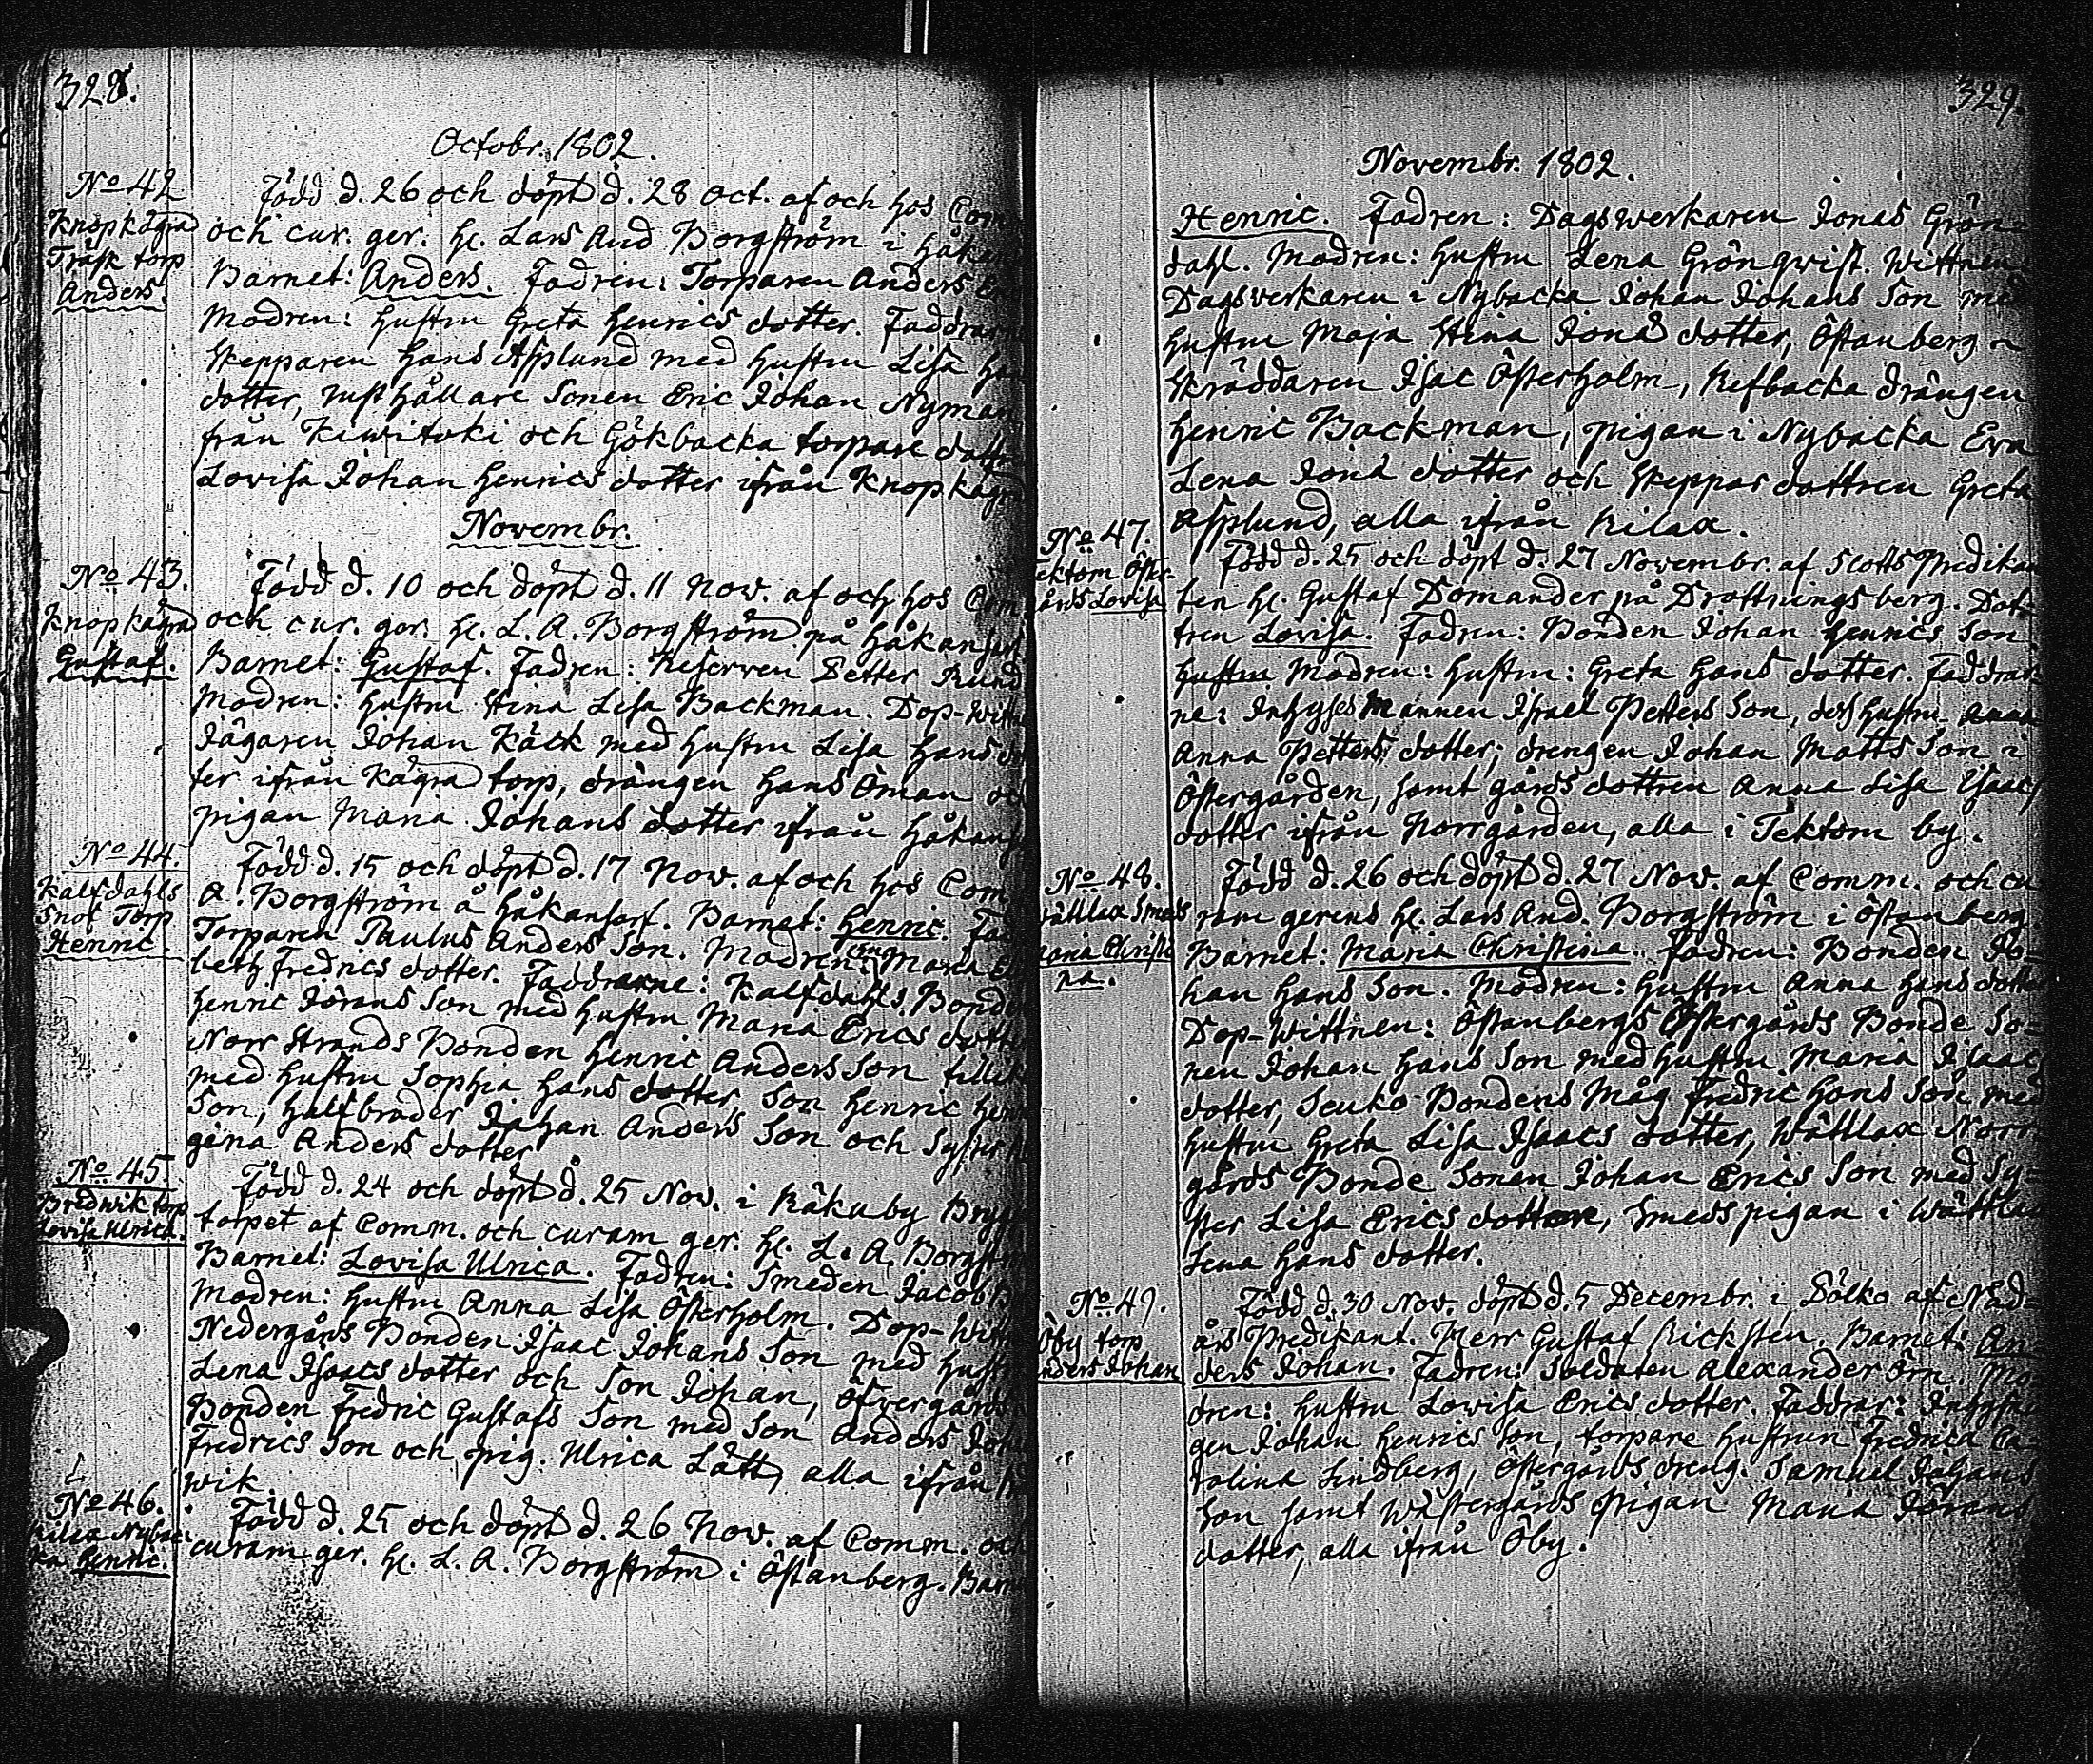 328.
Octobr. 1802.
No 42
Knopkägra
Träsk torp
Anders.
Född d. 26 och döpt d. 28 Oct. af och hos Com
och cur. ger. H. Lars And Borgström i Håkan
Barnet: Anders. Fadren: Torparen Anders
Modren: Hustru Greta Henrics dotter. Faddrar
Skepparen Hans Asplund med Hustru Lisa Ha
dotter, rusthållare Sonen Eric Johan Nyman
från Kiwitoki och Gökbacka torpare dottr
Lovisa Johan Henrics dotter ifrån Knopkägr
Novembr.
No 43.
Knopkägra
Gustaf.
Född d. 10 och döpt d. 11 Nov. af och hos Com
och cur. ger. H. L. A. Borgström på Håkansar
Barnet: Gustaf. Fadren: Reserven Petter Rund
Modren: Hustru Stina Lisa Backman. Dop-Witt
Jägaren Johan Käck med Hustru Lisa Hans do
ter ifrån Kägra torp, drängen Hans Öman oc
pigan Maria Johans dotter ifrån Håkans
No 44.
Kalfdahls
Snol Torp
Henric.
Född d. 15 och döpt d. 17 Nov. af och hos Com
A. Borgström å Håkansarf. Barnet: Henric. Fad
Torparen Paulus Anders Son. Modren: Maria El
beth Fredrics dotter. Faddrarne: Kalfdahls Bonde
Henric Jörans Son med Hustru Maria Erics dotte
Norr Strands Bonden Henric Anders Son tillik
med Hustru Sophia Hans dotter, Son Henric Hen
Son, halfbroder Johan Anders Son och Syster
gina Anders dotter
No 45.
Bredwik torp
Lovisa Ulrica.
Född d. 24 och döpt d. 25 Nov. i Räkuby Brygg
torpet af Comm. och curam ger. H. L. A. Borgstr
Barnet: Lovisa Ulrica. Fadren: Smeden Jacob B
Modren: Hustru Anna Lisa Österholm. Dop-Witt
Nedergårds Bonden Isaac Johans Son med Hust
Lena Isaacs dotter och Son Johan, Öfvergårds
Bonden Fredric Gustafs Son med Son Anders Joh
Fredrics Son och pig. Ulrica Lått, alla ifrån
wik.
No 46.
Kilax Nybac-
ka. Henric.
Född d. 25 och döpt d. 26 Nov. af Comm. oc
curam ger. H. L. A. Borgström i Östanberg. Barn
329.
Novembr. 1802.
Henric. Fadren: Dagswerkaren Jonas Grön-
dahl. Modren: Hustru Lena Grönqwist. Wittnen
Dagsverkaren i Nybacka Johan Johans Son med
Hustru Maja Stina Jonas dotter, Östanberg
Skräddaren Isac Österholm, Refbacka drängen
Henric Backman, pigan i Nybacka Eva
Lena Jonas dotter och Skeppar dottren Greta
Asplund, alla ifrån Kilax.
No 47.
ektom Öster-
årds Lovisa
Född d. 25 och döpt d. 27 Novembr. af Slotts Predikan
ten H. Gustaf Domander på Drottningsberg. Dot-
tren Lovisa. Fadren: Bonden Johan Henrics Son
Hustru Modren: Hustru: Greta Hans dotter. Faddrar-
ne: Inhyses Mannen Israel Petters Son, dess Hustru Anna
Anna Petters dotter; drengen Johan Matts Son i
Östergården, samt gårds dottren Anna Lisa Isaacs
dotter ifrån Norrgården, alla i Tektom by.
No 48.
ättlax Smeds
Maria Christi
na.
Född d. 26 och döpt d. 27 Nov. af Comm. och cu
ram gerens H. Lars And. Borgström i Östanberg.
Barnet: Maria Christina. Fadren: Bonden Jo-
han Hans Son. Modren: Hustru Anna Hans dotter
Dop-Wittnen: Östanbergs Östergårds Bonde So-
nen Johan Hans Son med Hustru Maria Isaacs
dotter, Scuko Bondens Måg Fredric Hans Son med
Hustru Greta Lisa Isaacs dotter, Wättlax Norr
gårds Bonde Sonen Johan Erics Son med Sy-
ster Lisa Erics dotter, Smeds pigan i Wättlax
Lena Hans dotter.
No 49.
Öby torp
nders Johan
Född d. 30 Nov. döpt d. 5 Decembr. i Pölko af Nåd-
års Predikant. Herr Gustaf Ricksten. Barnet: An
ders Johan. Fadren: Soldaten Alexander Örn. Mo-
dren: Hustru Lowisa Erics dotter. Faddrar: Inhyses
gen Johan Henrics Son, torpare Hustrun Fredrica Ca-
rolina Lindberg, Östergårds dreng. Samuel Johans
Son samt Wästergårds Pigan Maria Jörans
dotter, alla ifrån Öby.